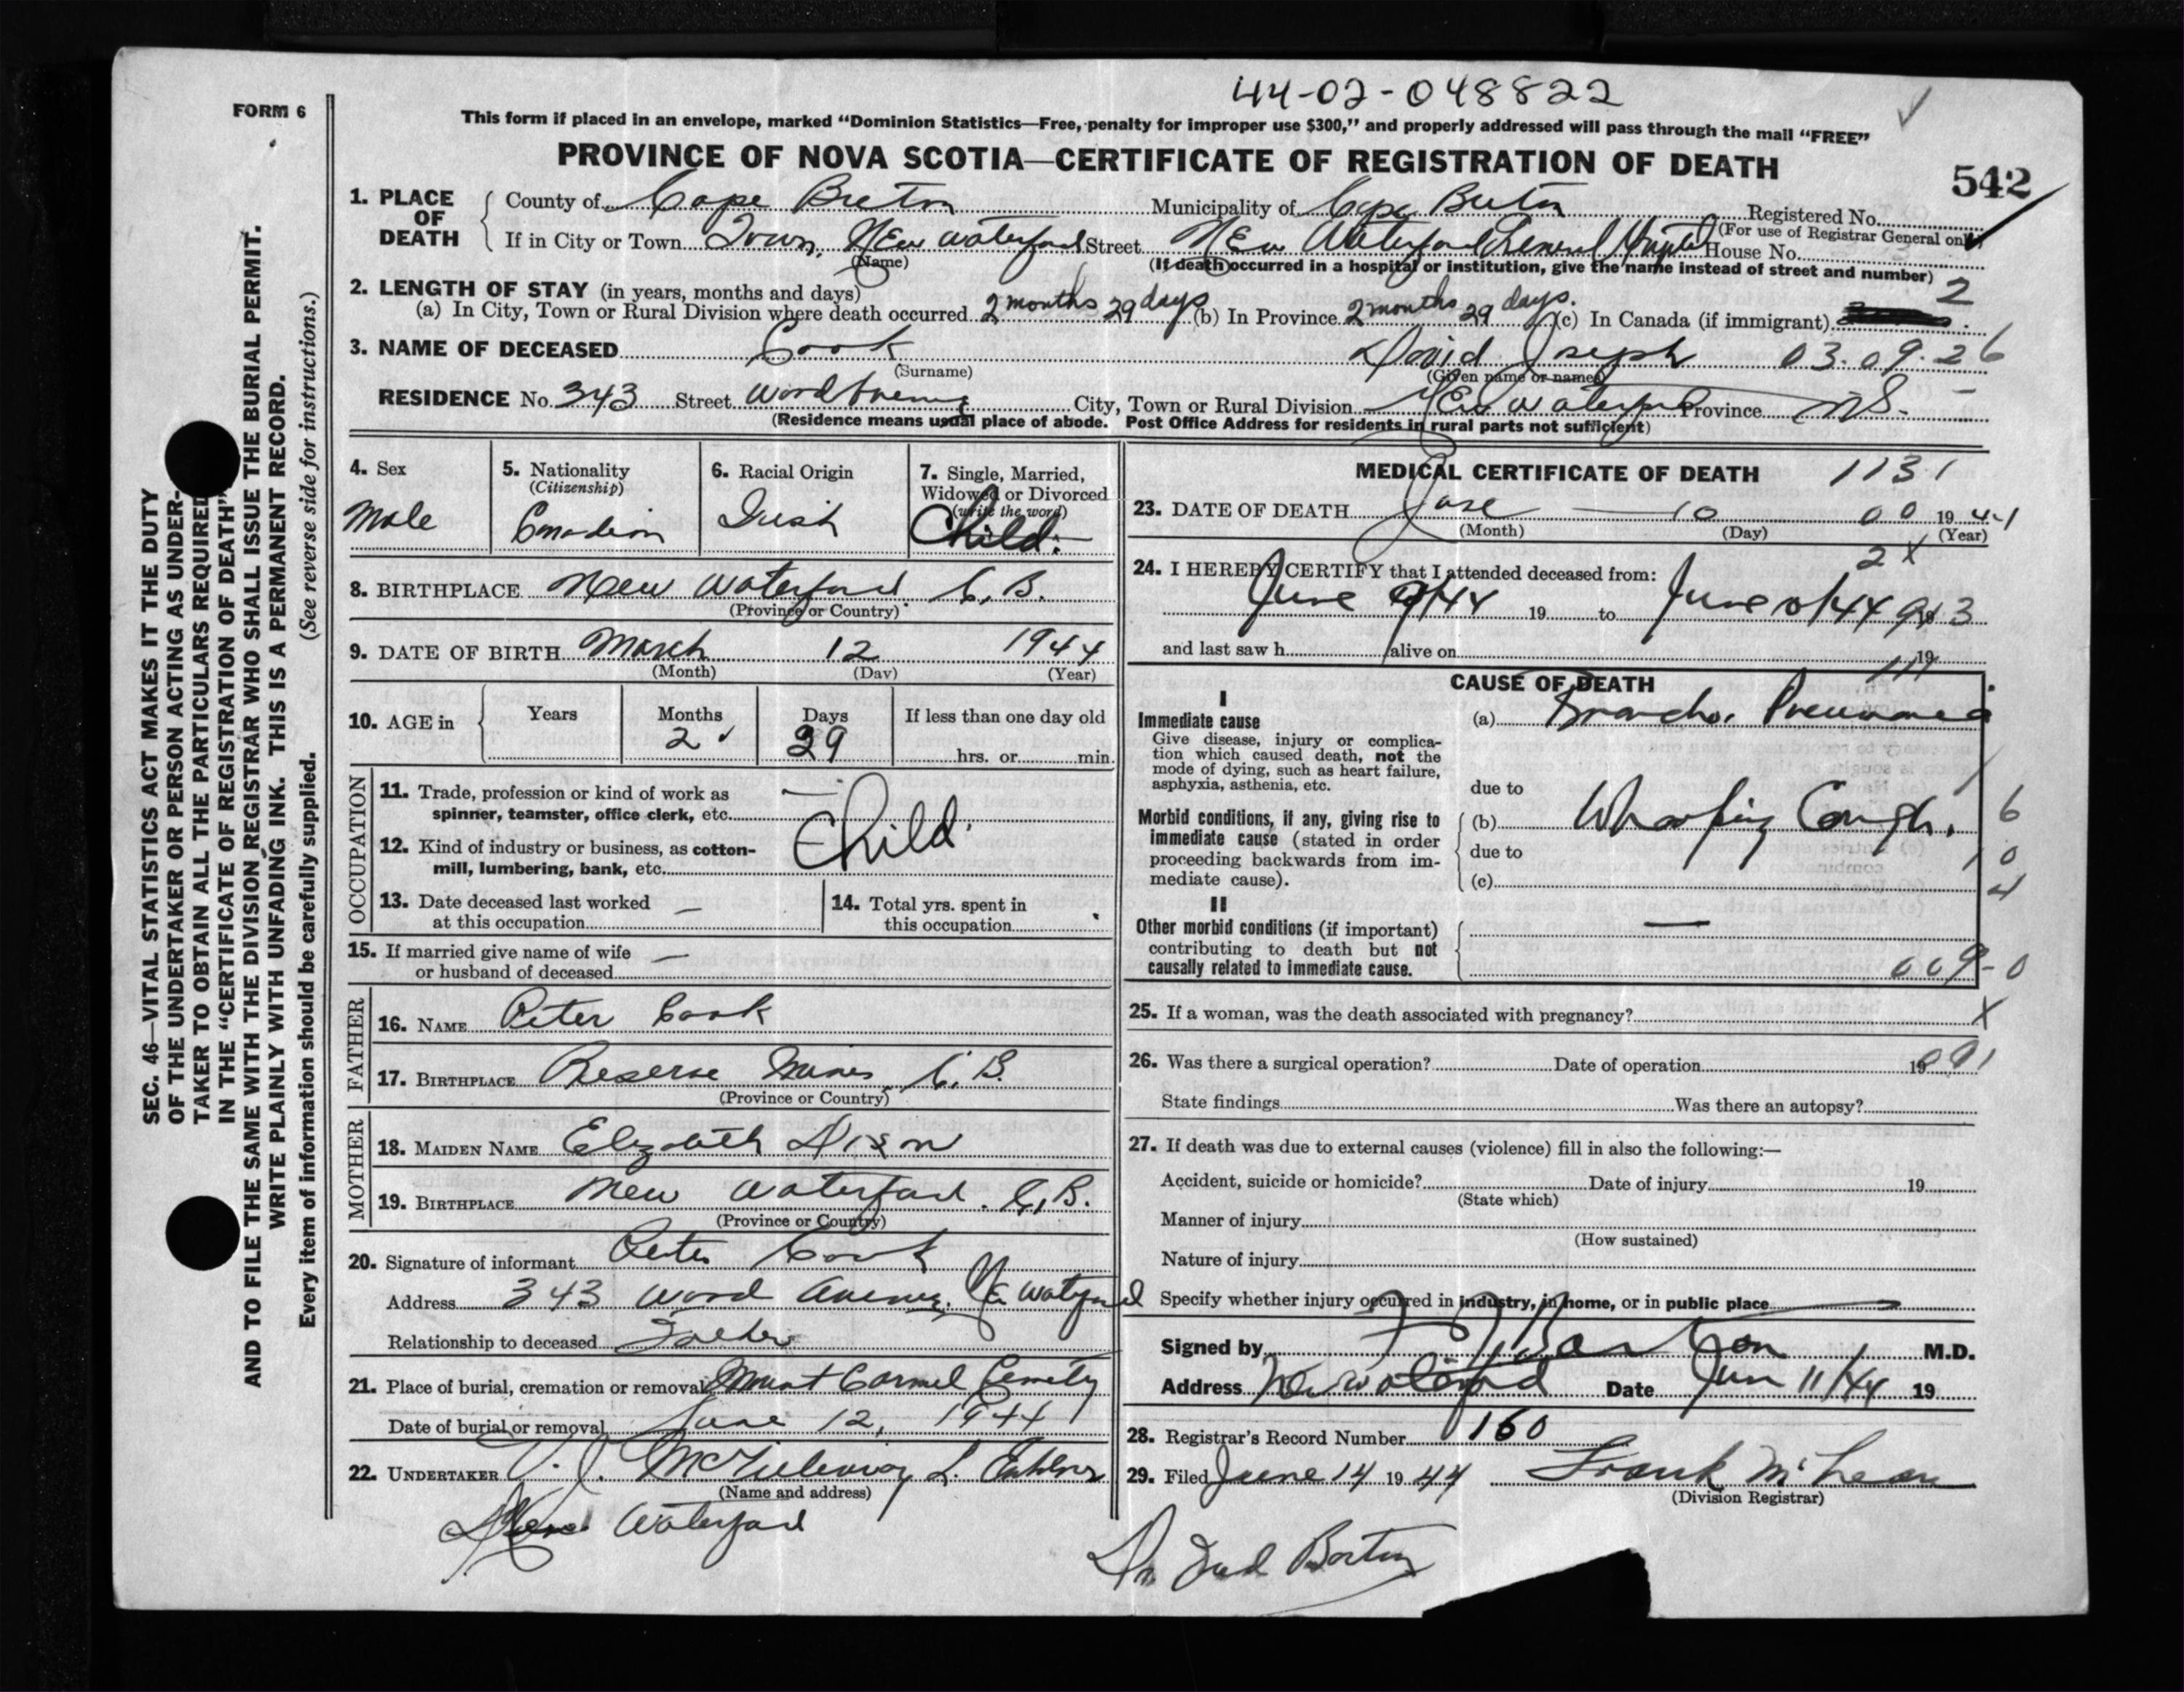 44-02-048822
FORM 6
This form if placed in an envelope, marked "Dominion Statistics—Free, penalty for improper use $300," and properly addressed will pass through the mail "FREE"
PROVINCE OF NOVA SCOTIA—CERTIFICATE OF REGISTRATION OF DEATH
542
1. PLACE OF DEATH County of Cape Breton Municipality of Cape Breton Registered No.
(For use of Registrar General only)
If in City or Town Town, New Waterford Street New Waterford General Hospital House No.
(Name) (If death occurred in a hospital or institution, give the name instead of street and number)
2. LENGTH OF STAY (in years, months and days) 2
(a) In City, Town or Rural Division where death occurred 2 months 29 days (b) In Province 2 months 29 days. (c) In Canada (if immigrant)
3. NAME OF DECEASED Cook David Joseph 03.09.26
(Surname) (Given name or names)
RESIDENCE No. 343 Street Word Avenue City, Town or Rural Division New Waterford Province N.S.
(Residence means usual place of abode. Post Office Address for residents in rural parts not sufficient)
4. Sex 5. Nationality (Citizenship) 6. Racial Origin 7. Single, Married, Widowed or Divorced (write the word)
Male Canadian Irish Child.
8. BIRTHPLACE New Waterford C.B.
(Province or Country)
9. DATE OF BIRTH March 12 1944
(Month) (Day) (Year)
10. AGE in Years Months Days If less than one day old
2 29 hrs. or min.
OCCUPATION
11. Trade, profession or kind of work as —
spinner, teamster, office clerk, etc.
12. Kind of industry or business, as cotton- Child
mill, lumbering, bank, etc.
13. Date deceased last worked — 14. Total yrs. spent in
at this occupation this occupation
15. If married give name of wife —
or husband of deceased
FATHER
16. NAME Peter Cook
17. BIRTHPLACE Reserve Mines, C.B.
(Province or Country)
MOTHER
18. MAIDEN NAME Elizabeth
19. BIRTHPLACE New Waterford. C.B.
(Province or Country)
20. Signature of informant Peter Cook
Address 343 Word Avenue, N. Waterford
Relationship to deceased Father
21. Place of burial, cremation or removal Mount Carmel Cemetery
Date of burial or removal June 12, 1944
22. UNDERTAKER V. J.
(Name and address)
New Waterford
MEDICAL CERTIFICATE OF DEATH 1131
23. DATE OF DEATH June — 10 00 1944
(Month) (Day) (Year)
2 X
24. I HEREBY CERTIFY that I attended deceased from:
June 9/44 19 to June 10/44 19 913
and last saw h alive on 19
111
CAUSE OF DEATH
I
Immediate cause (a) Broncho. Pneumonia
Give disease, injury or complica-
tion which caused death, not the
mode of dying, such as heart failure,
asphyxia, asthenia, etc. due to
Morbid conditions, if any, giving rise to (b) Whooping Cough. 6
immediate cause (stated in order
proceeding backwards from im- due to 10
mediate cause). (c) 4
II
Other morbid conditions (if important) —
contributing to death but not
causally related to immediate cause. 009-0
25. If a woman, was the death associated with pregnancy? X
26. Was there a surgical operation? Date of operation 19 091
State findings Was there an autopsy?
27. If death was due to external causes (violence) fill in also the following:—
Accident, suicide or homicide? Date of injury 19
(State which)
Manner of injury
(How sustained)
Nature of injury
Specify whether injury occurred in industry, in home, or in public place
Signed by Barton M.D.
Address New Waterford Date Jun 11/44 19
28. Registrar's Record Number 160
29. Filed June 14 1944 Frank McLean
(Division Registrar)
Dr Barton
SEC. 46—VITAL STATISTICS ACT MAKES IT THE DUTY
OF THE UNDERTAKER OR PERSON ACTING AS UNDER-
TAKER TO OBTAIN ALL THE PARTICULARS REQUIRED
IN THE "CERTIFICATE OF REGISTRATION OF DEATH"
AND TO FILE THE SAME WITH THE DIVISION REGISTRAR WHO SHALL ISSUE THE BURIAL PERMIT.
WRITE PLAINLY WITH UNFADING INK. THIS IS A PERMANENT RECORD.
Every item of information should be carefully supplied. (See reverse side for instructions.)